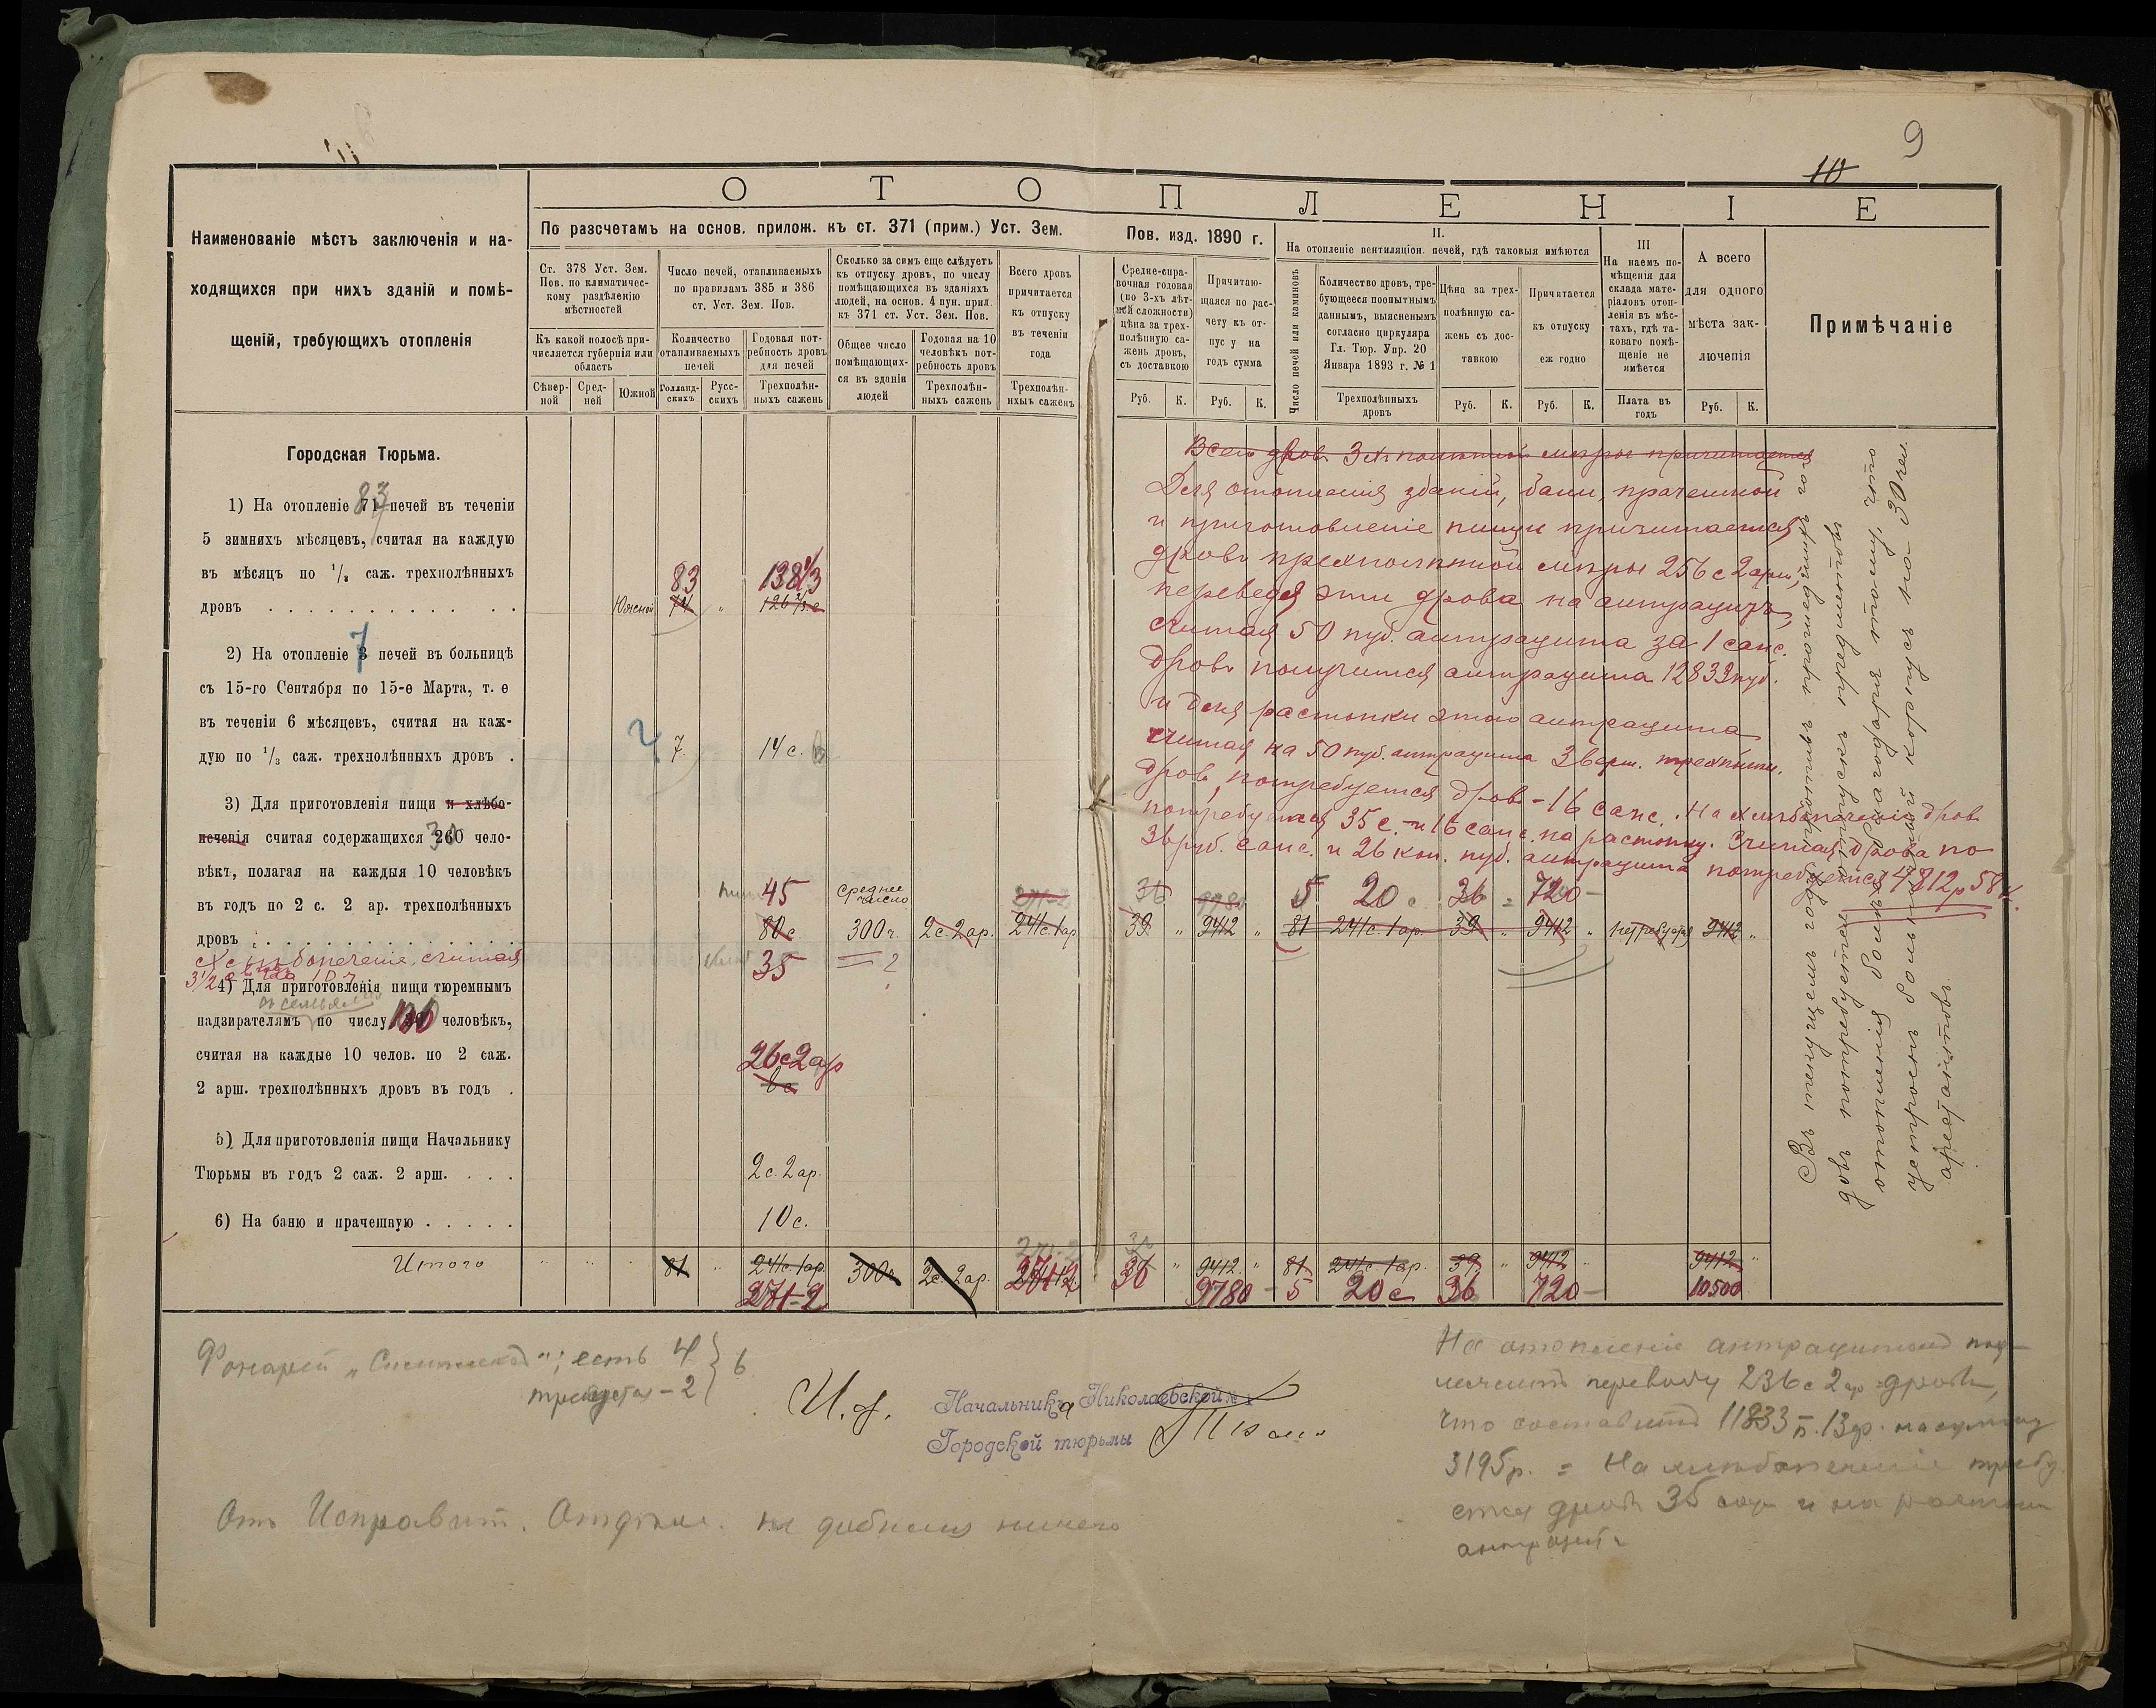 9
10
О Т О П Л Е Н І Е
Наименованіе мѣстъ заключенія и на-
ходящихся при нихъ зданій и помѣ-
щеній, требующихъ отопленія
По разсчетамъ на основ. прилож. къ ст. 371 (прим.) Уст. Зем.
Пов. изд. 1890 г.
Ст. 378 Уст. Зем.
Пов. по климатичес-
кому раздѣленію
мѣстностей
Къ какой полосѣ при-
числяется губернія или
область
Сѣвер-
ной
Сред-
ней
Южной
Число печей, отапливаемыхъ
по правиламъ 385 и 386
ст. Уст. Зем. Пов.
Количество
отапливаемыхъ
печей
Голланд-
скихъ
Русс-
скихъ
Годовая пот-
ребность дровъ
для печей
Трехполѣн-
ныхъ сажень
Сколько за симъ еще слѣдуетъ
къ отпуску дровъ, по числу
помѣщающихся въ зданіяхъ
людей, на основ. 4 пун. прил.
къ 371 ст. Уст. Зем. Пов.
Общее число
помѣщающих-
ся въ зданіи
людей
Годовая на 10
человѣкъ пот-
ребность дровъ
Трехполѣн-
ныхъ сажень
Всего дровъ
причитается
къ отпуску
въ теченіи
года
Трехполѣн-
ныхъ сажень
Средне-спра-
вочная годовая
(по 3-хъ лѣт-
ней сложности)
цѣна за трех-
полѣнную са-
жень дровъ,
съ доставкою
Руб. К.
Причитаю-
щаяся по рас-
чету къ от-
пуску на
годъ сумма
Руб. К.
II.
На отопленіе вентиляціон. печей, гдѣ таковыя имѣются
Число печей или каминовъ
Количество дровъ, тре-
бующееся поопытнымъ
даннымъ, выясненымъ
согласно циркуляра
Гл. Тюр. Упр. 20
Января 1893 г. № 1
Трехполѣнныхъ
дровъ
Цѣна за трех-
полѣнную са-
жень съ дос-
тавкою
Руб. К.
Причитается
къ отпуску
ежегодно
Руб. К.
III
На наемъ по-
мѣщенія для
склада мате-
ріаловъ отоп-
ленія въ мѣс-
тахъ, гдѣ та-
коваго помѣ-
щеніе не
имѣется
Плата въ
годъ
А всего
для одного
мѣста зак-
люченія
Руб. К.
Примѣчаніе
Городская Тюрьма.
83
1) На отопленіе 71 печей въ теченіи
5 зимнихъ мѣсяцевъ, считая на каждую
въ мѣсяцъ по 1/3 саж. трехполѣнныхъ
дровъ
Южной
83
74
138 1/3
126 2/3 с
7
2) На отопленіе 3 печей въ больницѣ
съ 15-го Сентября по 15-е Марта, т. е
въ теченіи 6 мѣсяцевъ, считая на каж-
дую по 1/3 саж. трехполѣнныхъ дровъ .
?
7.
14 с.
3) Для приготовленія пищи и хлѣбо-
печенія считая содержащихся 260 чело-
вѣкъ, полагая на каждыя 10 человѣкъ
въ годъ по 2 с. 2 ар. трехполѣнныхъ
дровъ
45
80 с.
35
среднее
число
300 ч.
2 с. 2 ар.
271-2
241 с. 1 ар
36
39
9780
9412
5 20 с 36 = 720 -
81 241 с. 1 ар. 39 9412
нетребуется
9412
хлѣбопеченіе, считая
3 1/2 с. на 10 ч.
4) Для приготовленія пищи тюремнымъ
съ семьями
надзирателямъ по числу 100 человѣкъ,
считая на каждые 10 челов. по 2 саж.
2 арш. трехполѣнныхъ дровъ въ годъ .
26 с 2 ар
5) Для приготовленія пищи Начальнику
Тюрьмы въ годъ 2 саж. 2 арш. . . .
2 с. 2 ар.
6) На баню и прачешную . . . . .
10 с.
Всего дровъ 3хъ полѣнной мѣры причитается
Для отопленія зданій, бани, прачешной
и приготовленіе пищи причитается
дровъ трехполѣнной мѣры 256 с 2 арш.,
переведя эти дрова на антрацитъ,
считая 50 пуд. антрацита за 1 саж.
дровъ получится антрацита 12833 пуд.
и для растопки этого антрацита
считая на 50 пуд. антрацита 3 варш. трехполѣн.
дровъ, потребуется дровъ - 16 саж. На хлѣбопеченіе дровъ
потребуется 35 с. и 16 саж. на растопку. Считая дрова по
36 руб. саж. и 26 коп. пуд. антрацита потребуется 4812 р 58 к.
Въ текущемъ году противъ прошедшаго го-
довъ потребуется отпускъ предметовъ
отопленія больше благодаря тому, что
устроенъ большой корпусъ на 30 чел.
арестантовъ.
Итого
81
241 с. 1 ар.
271-2
300 ч.
2 с. 2 ар.
271-2
36
9412.
9780
81 241 с. 1 ар. 39 9412
5 20 с 36 720
9412
10500
Фонарей есть 4 } 6
требуется - 2
И. д. Начальника Николаевской № 1
Городской тюрьмы
Отъ Исправит. Отдѣл. не добился ничего
На отопленіе антрацитомъ под-
лежитъ переводу 236 с 2 ар дровъ,
что составитъ 11833 п. 13 ф. на сумму
3195 р. = На хлѣбопеченіе требу-
ется дровъ 35 саж и на растопк
антрацита